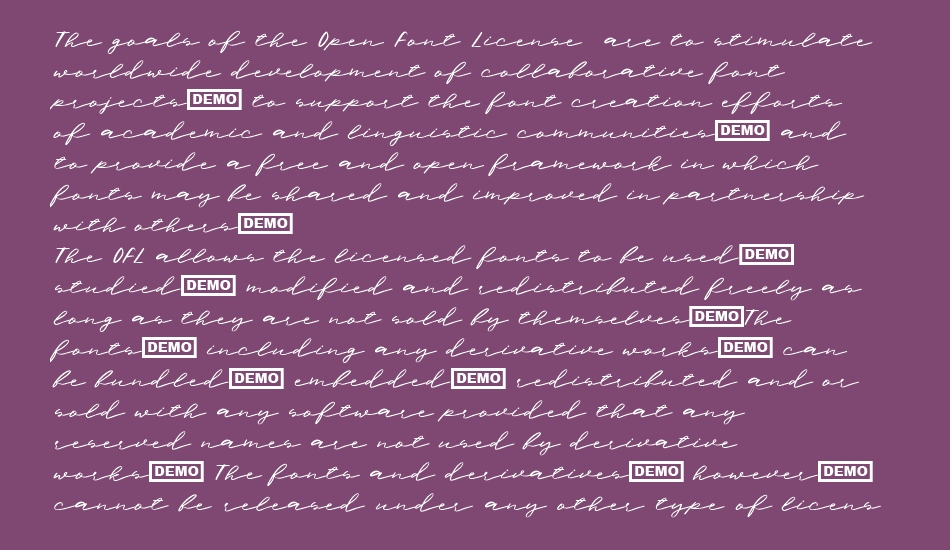 The goals of the Open Font License are to stimulate
worldwide development of collaborative font
projectsDEMO to support the font creation efforts
of academic and linguistic communitiesDEMO and
to provide a free and open framework in which
fonts may be shared and improved in partnership
with othersDEMO
The OFL allows the licensed fonts to be usedDEMO
studiedDEMO modified and redistributed freely as
long as they are not sold by themselvesDEMOThe
fontsDEMO including any derivative worksDEMO can
be bundledDEMO embeddedDEMO redistributed and or
sold with any software provided that any
reserved names are not used by derivative
worksDEMO The fonts and derivativesDEMO howeverDEMO
cannot be released under any other type of licens